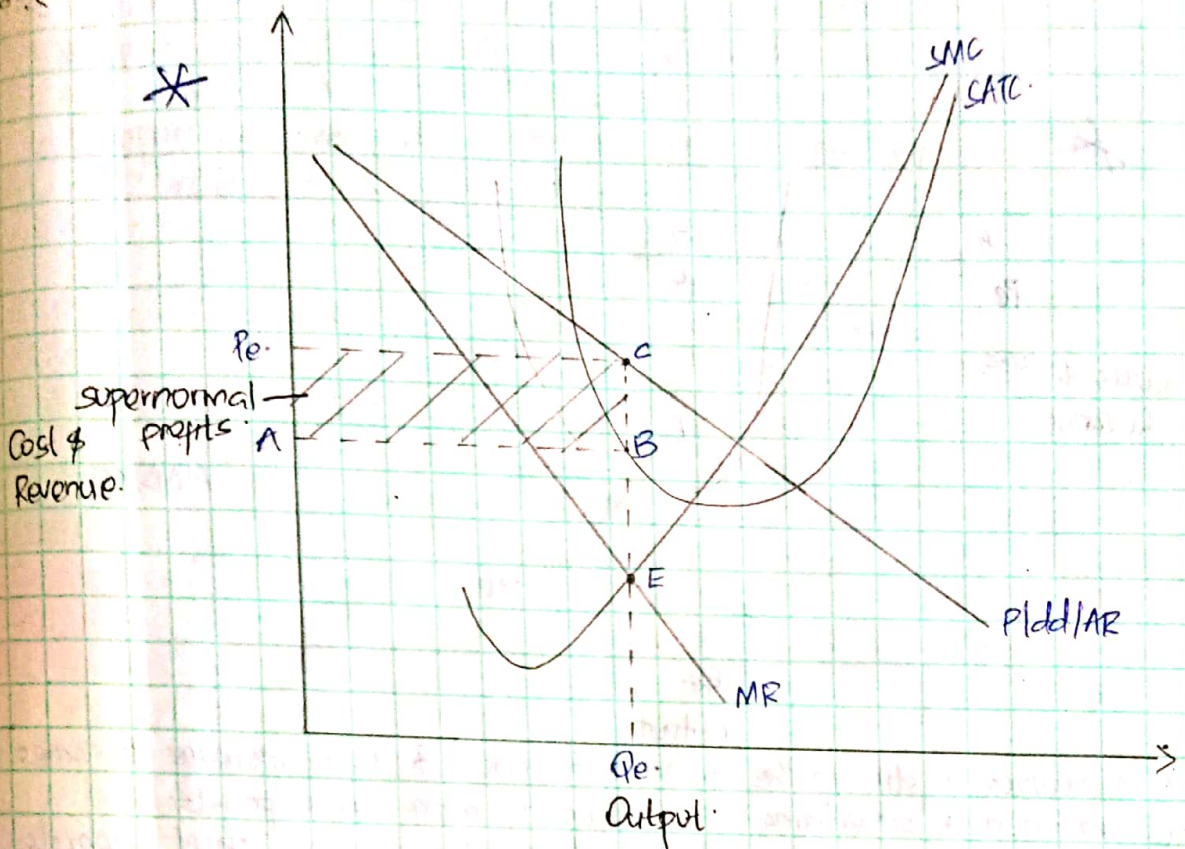 SMC
SATC.
Pe.
C
supernormal
profits.
Cost &
Revenue.
A
B
E
P/dd/AR
MR
Qe.
Output.